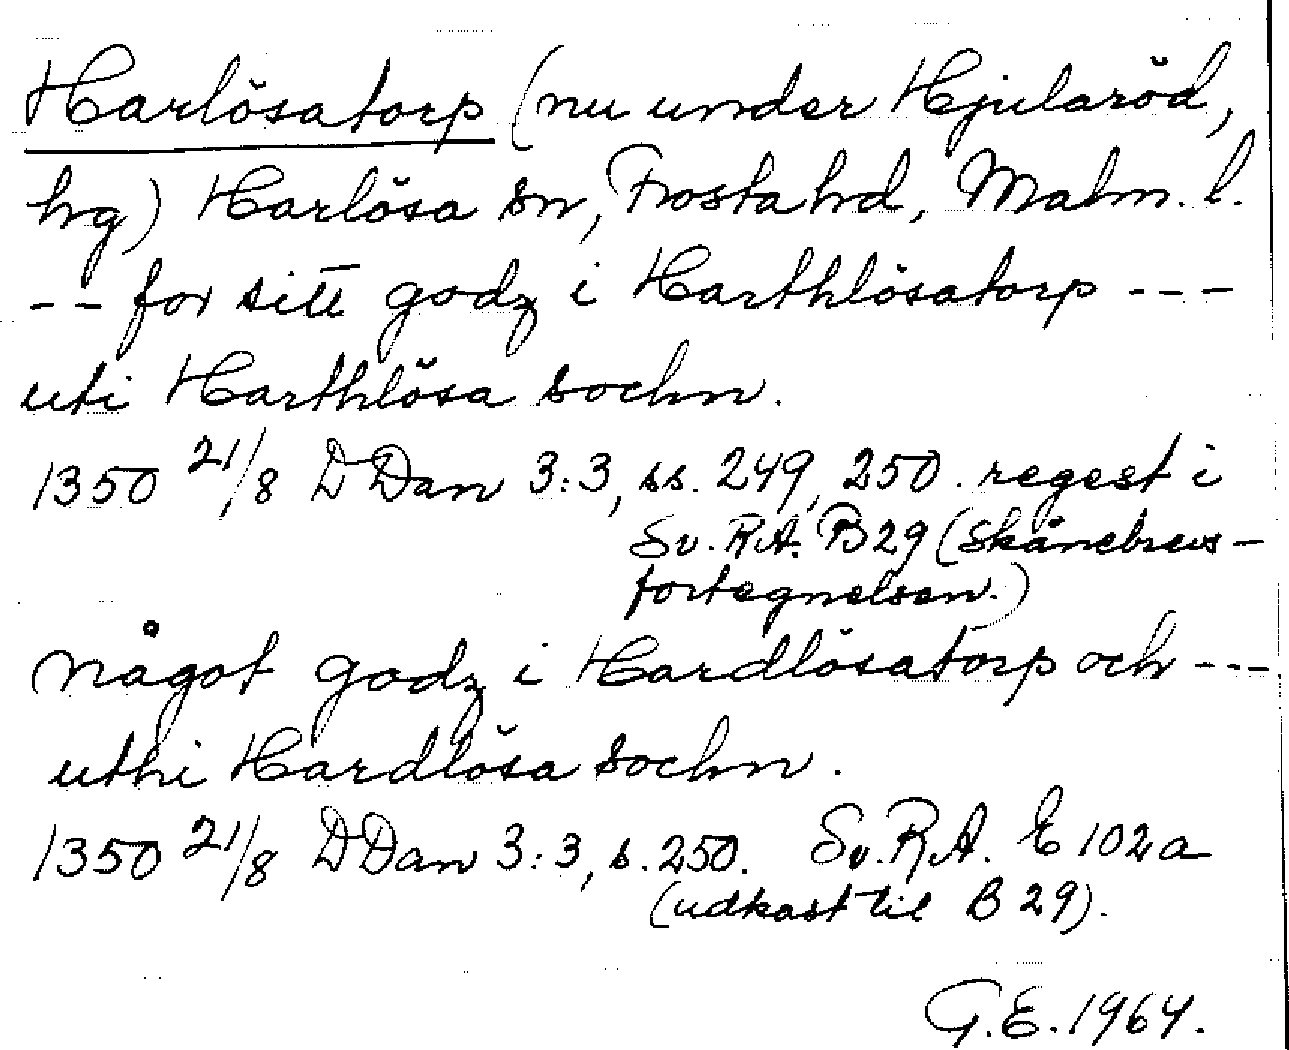 Harlösatorp (nu under Hjularöd,
hg) Harlösa sn, Frosta hd, Malm. l.
-- for sitt godz i Harthlösatorp ---
uti Harthlösa sochn.
1350 21/8 DDan 3:3, ss. 249, 250. regest i
Sv. RA. B29 (Skånebrevs-
fortegnelsen.)
något godz i Hardlösatorp och ---
uthi Hardlösa sochn.
1350 21/8 DDan 3:3, s. 250. Sv. R.A. E 102a
(udkast til B 29).
G.E. 1964.